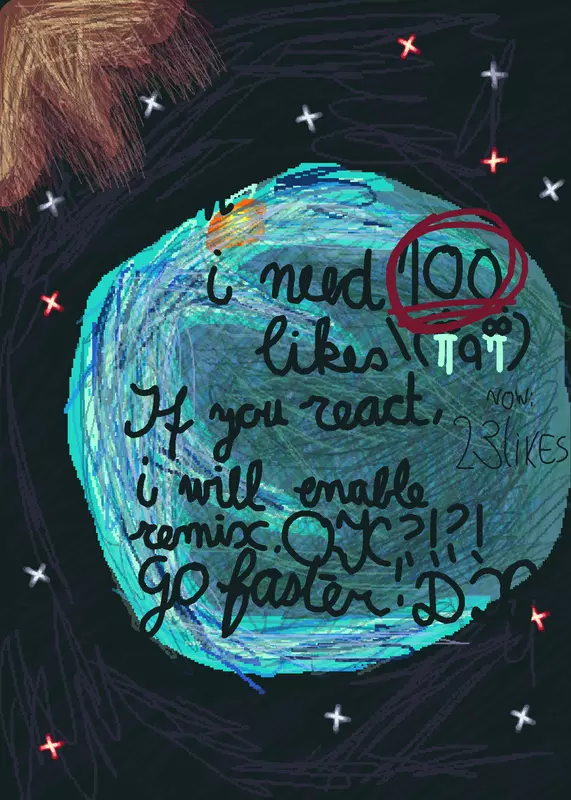 i need 100
likes \(ㅠaㅠ)
If you react,
NOW:
23LIKES
i will enable
remix. OK?!?!
GO faster! D